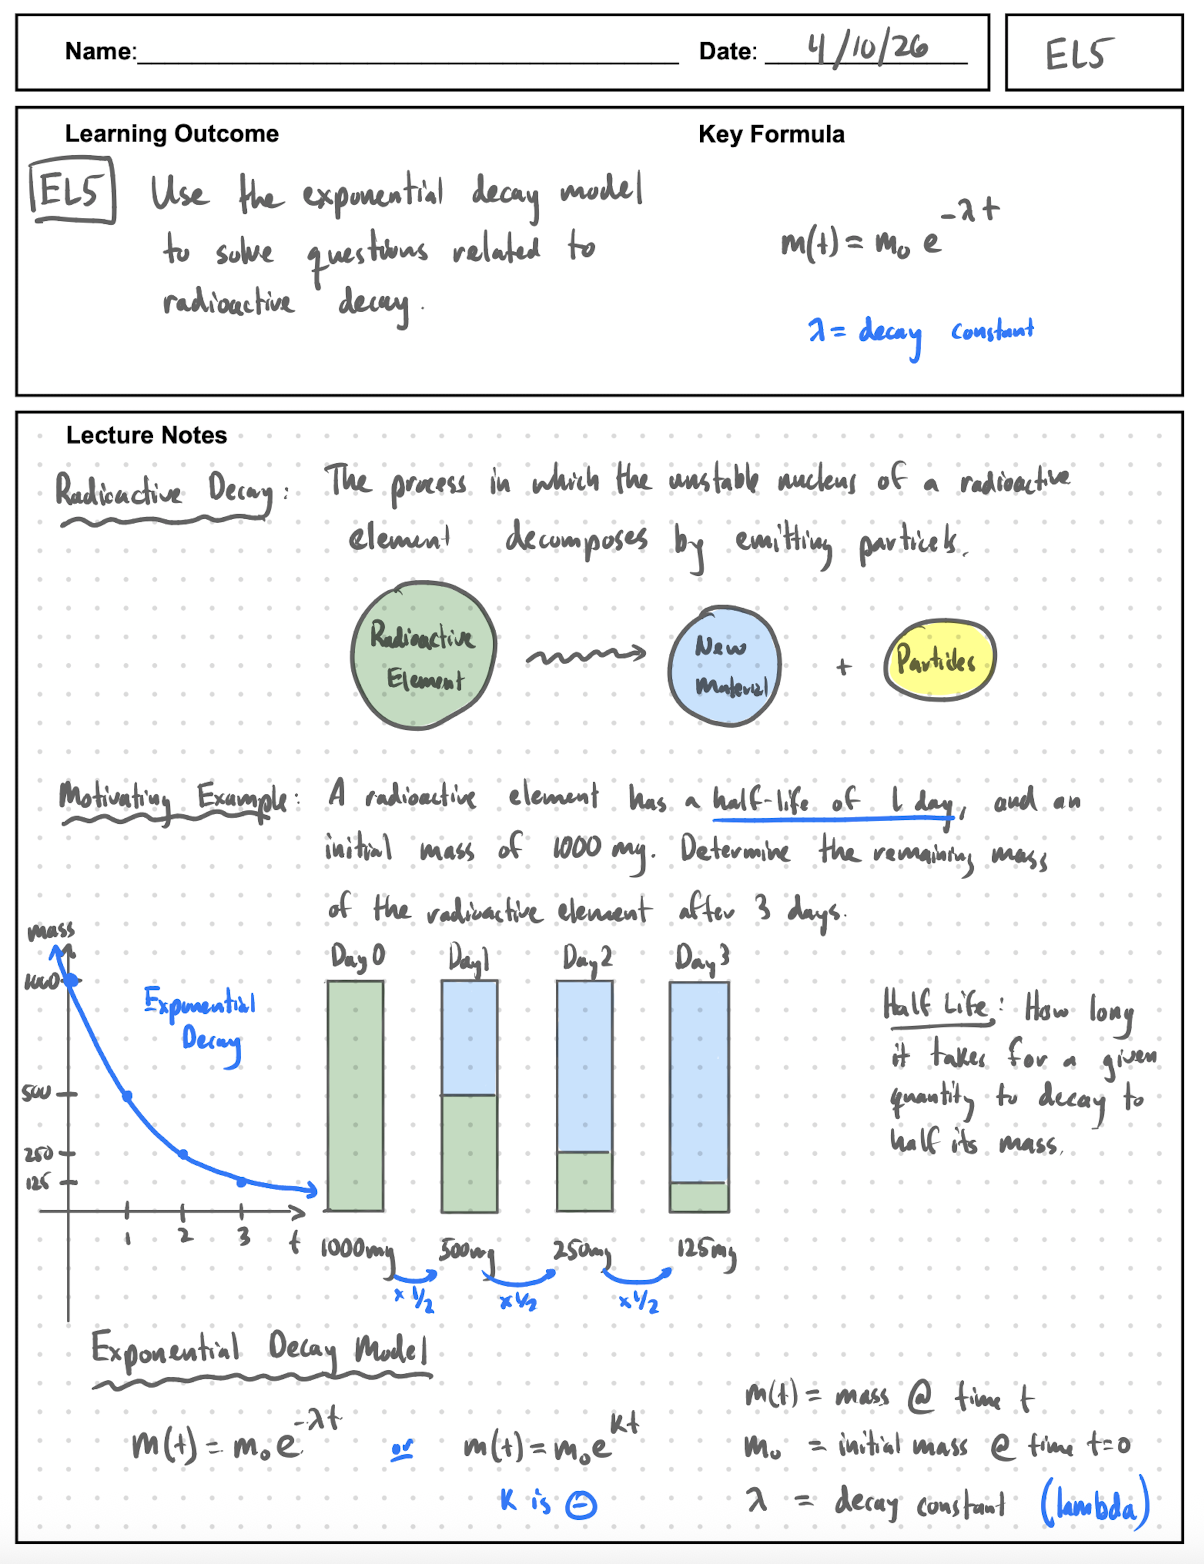 Name: Date: 4/10/26 EL5
Learning Outcome Key Formula
EL5 Use the exponential decay model
to solve questions related to
radioactive decay.
m(t) = m₀ e^{-λt}
λ = decay constant
Lecture Notes
Radioactive Decay: The process in which the unstable nucleus of a radioactive
element decomposes by emitting particels.
Radioactive
Element
New
Material
+
Particles
Motivating Example: A radioactive element has a half-life of 1 day, and an
initial mass of 1000 mg. Determine the remaining mass
of the radioactive element after 3 days.
mass
1000
500
250
125
1 2 3 t
Exponential
Decay
Day 0 Day 1 Day 2 Day 3
1000mg 500mg 250mg 125mg
x 1/2 x 1/2 x 1/2
Half Life: How long
it takes for a given
quantity to decay to
half its mass.
Exponential Decay Model
m(t) = m₀e^{-λt} or m(t) = m₀e^{kt}
K is ⊖
m(t) = mass @ time t
m₀ = initial mass @ time t=0
λ = decay constant (lambda)